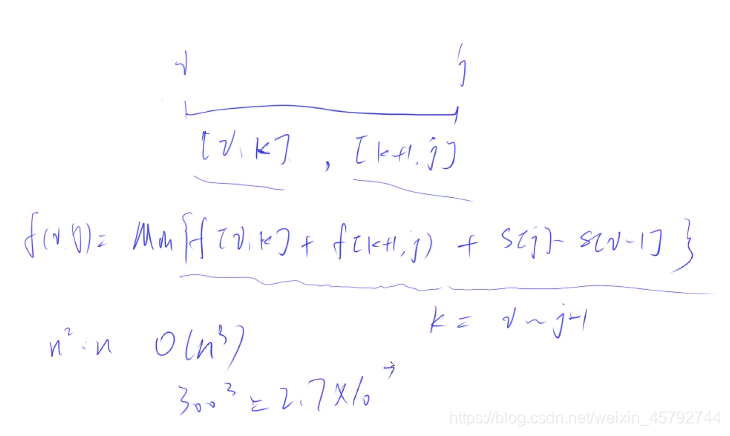 i j
[i, k] , [k+1, j]
f(i, j) = Min{f[i, k] + f[k+1, j) + S[j] - S[i-1] }
k = i ~ j-1
n² · n O(n³)
300³ = 2.7 × 10⁷
https://blog.csdn.net/weixin_45792744